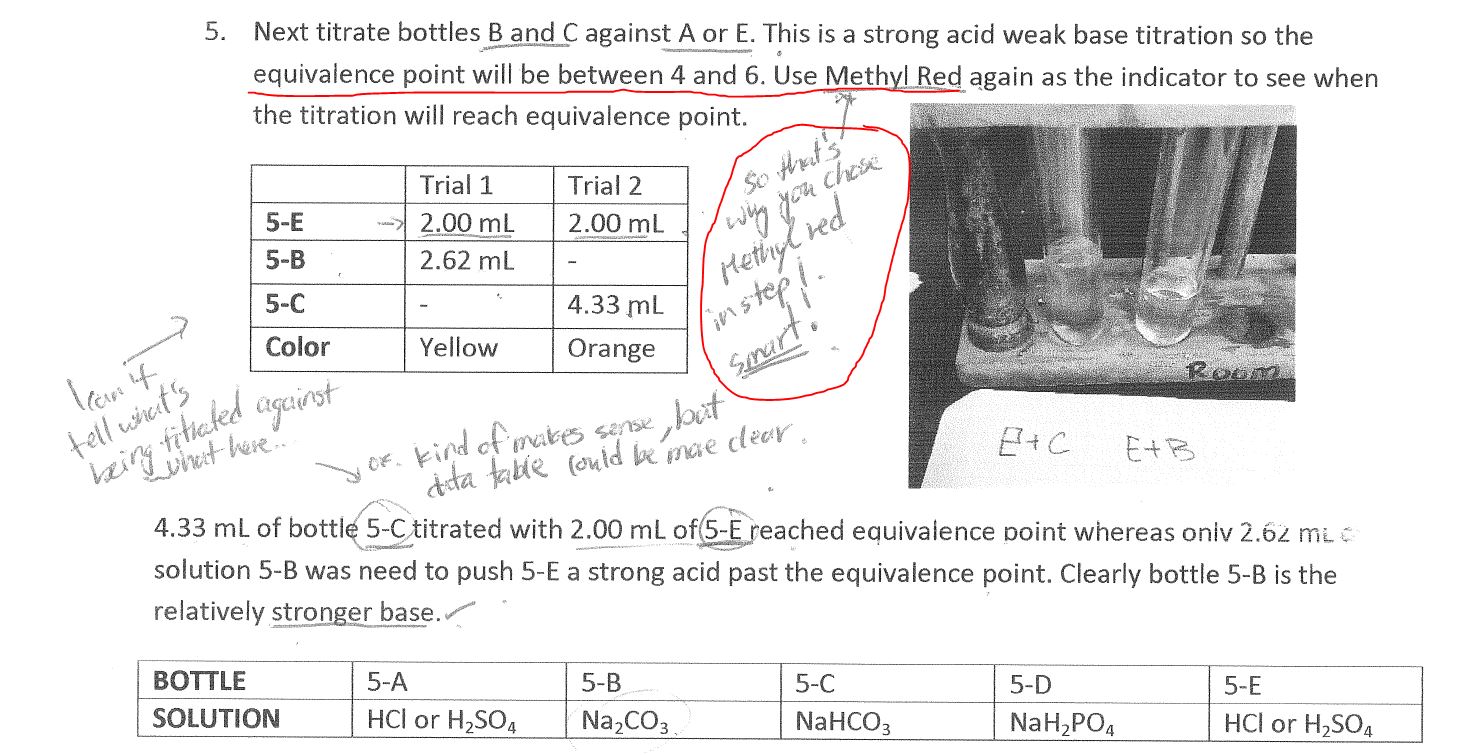 5. Next titrate bottles B and C against A or E. This is a strong acid weak base titration so the
equivalence point will be between 4 and 6. Use Methyl Red again as the indicator to see when
the titration will reach equivalence point.
Trial 1 Trial 2
5-E 2.00 mL 2.00 mL
5-B 2.62 mL -
5-C - 4.33 mL
Color Yellow Orange
so that's
why you chose
Methyl red
in step 1.
Smart!
Room
E+C E+B
I can't
tell what's
being titrated against
what here...
ok. kind of makes sense, but
data table could be more clear.
4.33 mL of bottle 5-C titrated with 2.00 mL of 5-E reached equivalence point whereas only 2.62 mL
solution 5-B was need to push 5-E a strong acid past the equivalence point. Clearly bottle 5-B is the
relatively stronger base.
BOTTLE 5-A 5-B 5-C 5-D 5-E
SOLUTION HCl or H₂SO₄ Na₂CO₃ NaHCO₃ NaH₂PO₄ HCl or H₂SO₄